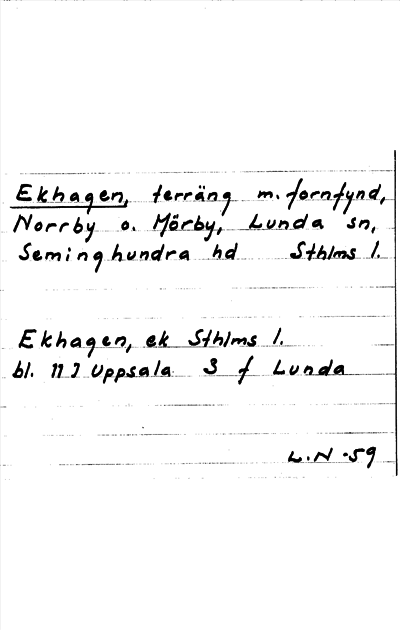 Ekhagen, terräng m. fornfynd,
Norrby o. Mörby, Lunda sn,
Seminghundra hd Sthlms l.
Ekhagen, ek Sthlms l.
bl. 11 I Uppsala 3 f Lunda
L.N -59